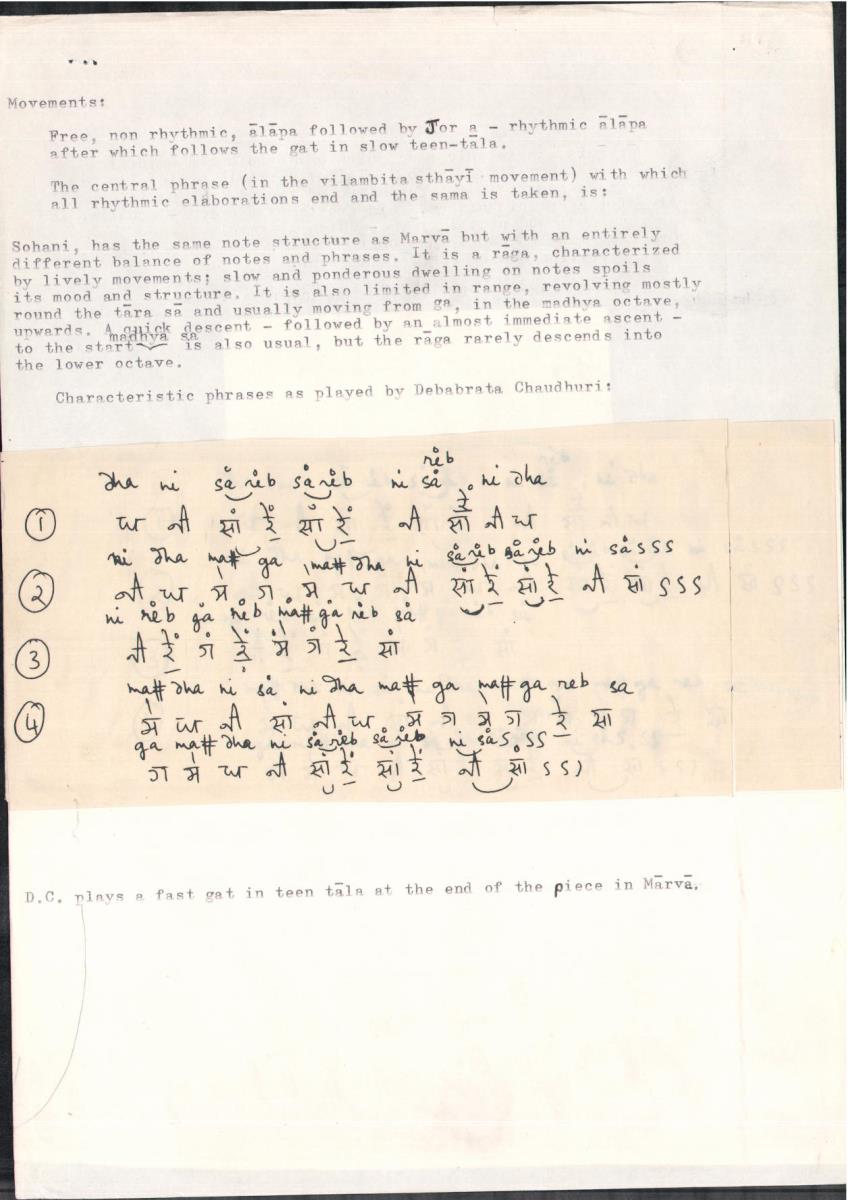 Movements:
Free, non rhythmic, ālāpa followed by Jor a - rhythmic ālāpa
after which follows the gat in slow teen-tāla.
The central phrase (in the vilambita sthāyī movement) with which
all rhythmic elaborations end and the sama is taken, is:
Sohani, has the same note structure as Marvā but with an entirely
different balance of notes and phrases. It is a rāga, characterized
by lively movements; slow and ponderous dwelling on notes spoils
its mood and structure. It is also limited in range, revolving mostly
round the tāra sā and usually moving from ga, in the madhya octave,
upwards. A quick descent - followed by an almost immediate ascent -
madhya sa
to the start is also usual, but the rāga rarely descends into
the lower octave.
Characteristic phrases as played by Debabrata Chaudhuri:
re̊b
dha ni så re̊b så re̊b ni så ni dha
① ध नी सां रें॒ सां रें॒ नी सां रें॒ नी ध
ni dha ma# ga ma# dha ni så re̊b så re̊b ni så s s s
② नी ध म॑ ग म॑ ध नी सां रें॒ सां रें॒ नी सां ऽ ऽ ऽ
ni re̊b gå re̊b må# gå re̊b så
③ नी रें॒ गं रें॒ मं॑ गं रें॒ सां
ma# dha ni så ni dha ma# ga ma# ga reb sa
④ म॑ ध नी सां नी ध म॑ ग म॑ ग रे॒ सा
ga ma# dha ni så re̊b så re̊b ni så s s s
ग म॑ ध नी सां रें॒ सां रें॒ नी सां ऽ ऽ )
D.C. plays a fast gat in teen tāla at the end of the piece in Mārvā.